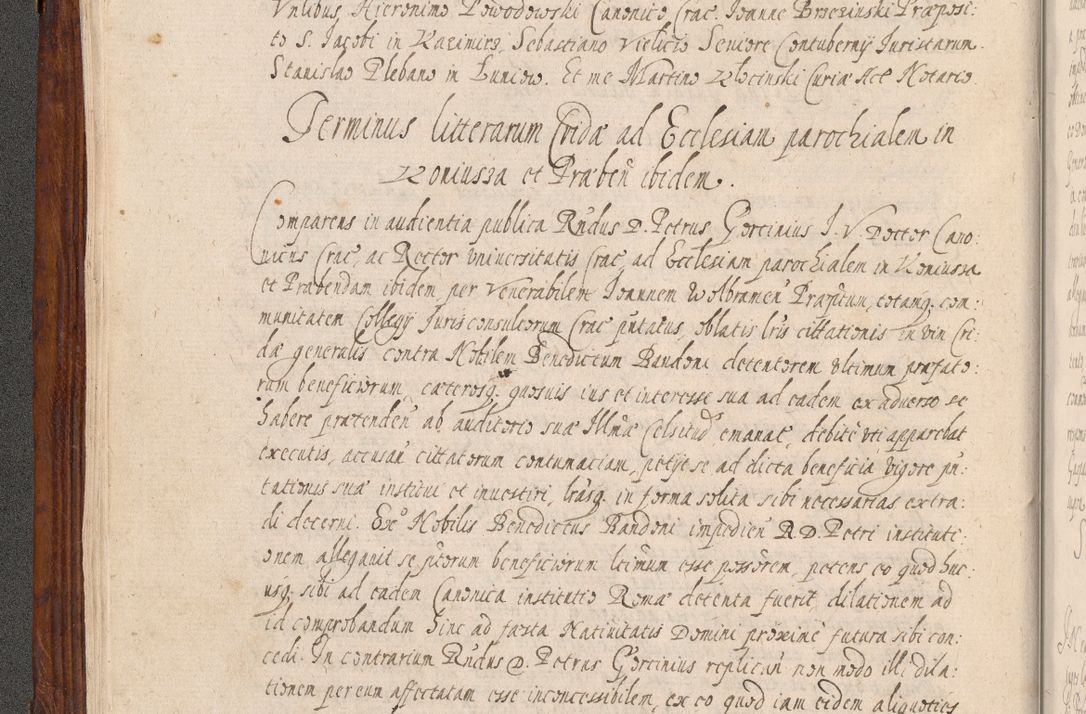 Vnlibus, Hieronimo Powodowski Canonico Crac. Ioanne Brzezinski Præposi:
to S. Jacobi in Kazimirz, Sebastiano Vielicio Seniore Contubernij Juristarum.
Stanislao Plebano in Luniow. Et me Martino Klocinski Curiæ Acte Notario
Terminus litterarum Cridæ ad Ecclesiam parochialem in
Koniussa et Præben ibidem.
Comparens in audientia publica Rndus D. Petrus Gorcinius I. V. Doctor Cano:
nicus Crac, ac Rector vniuersitatis Crac, ad Ecclesiam parochialem in Koniussa
et Præbendam ibidem per Venerabilem Ioannem Wolbramen Præpitum, totamq. con:
munitatem Collegij Jurisconsultorum Crac pntatus, oblatis lris cittationis in vin Cri:
dæ generalis contra Nobilem Benedictum Bandoni detentorem vltimum præfato:
rum beneficiorum, cæterosq. quosuis ius et interesse sua ad eadem ex aduerso se
habere prætenden ab auditorio suæ Illmæ Celsitud emanat, debite vti apparebat
executis, accusan cittatorum contumaciam, petijt se ad dicta beneficia vigore pn:
tationis suæ institui et inuestiri, lrasq. in forma solita sibi necessarias extra:
di decerni. Exo Nobilis Benedictus Bandoni impedien R. D. Petri instituti:
onem allegauit se ptorum beneficiorum ltimum esse possorem, petens eo quod huc
usq. sibi ad eadem Canonica institutio Romæ detenta fuerit, dilationem ad
id comprobandum hinc ad fæsta Natiuitatis Domini proxime futura sibi con:
cedi. In contrarium Rndus D. Petrus Gorcinius replican non modo illi dila:
tionem per eum affectatam esse inconcessibilem, ex eo quod iam eidem aliquoties